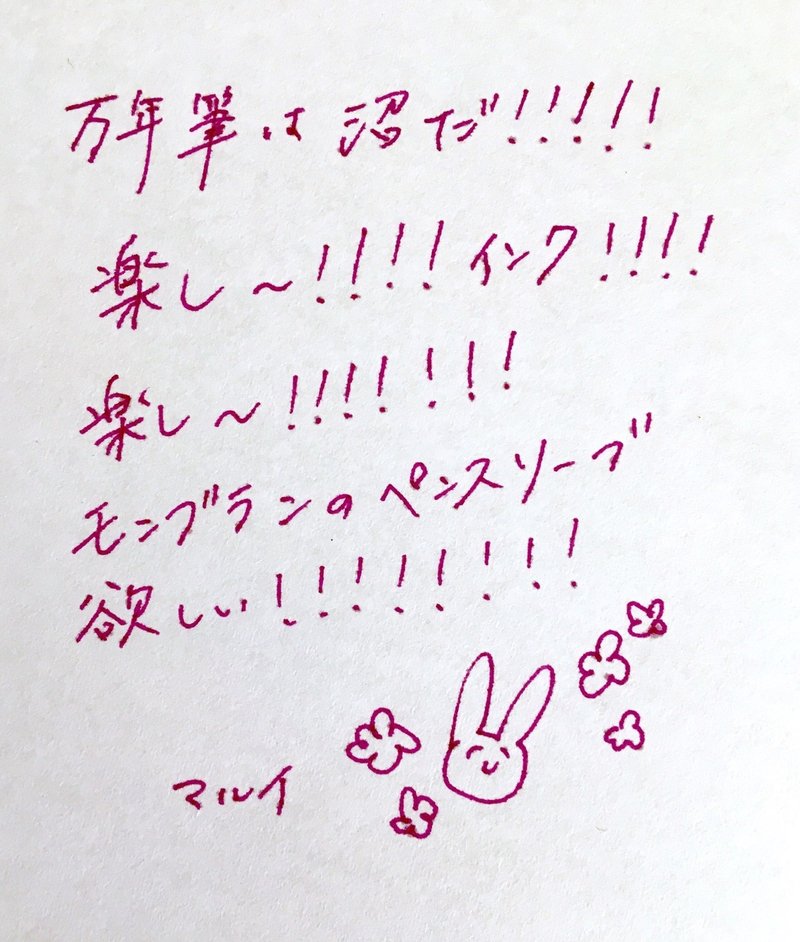 万年筆は沼だ!!!!!!
楽し～!!!!!インク!!!!!
楽し～!!!!!!!
モンブランのペンスソーブ
欲しい!!!!!!!!
マルイ